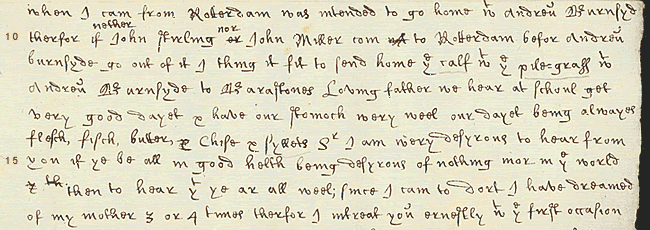 when I cam from Rotterdam was intended to go home wt Andreu Burnsyd
nether nor
10 therfor if John stirling er John Miller com to Rotterdam befor Andreu
burnsyde go out of it I thing it fit to send home ye calf wt ye pile-grass wt
Andreu Burnsyde to Loving father we hear at school get
very good dayet & have our stomoch wery weel our dayet being alwayes
flesh, fisch, butter, & Chise & Sr I am wery desyrous to hear from
15 you if ye be all in good helth being desyrous of nothing mor in ye world
then to hear yt ye ar all weel; since I cam to dort I have dreamed
of my mother 3 or 4 times therfor I intreat you ernestly wt ye first occasion